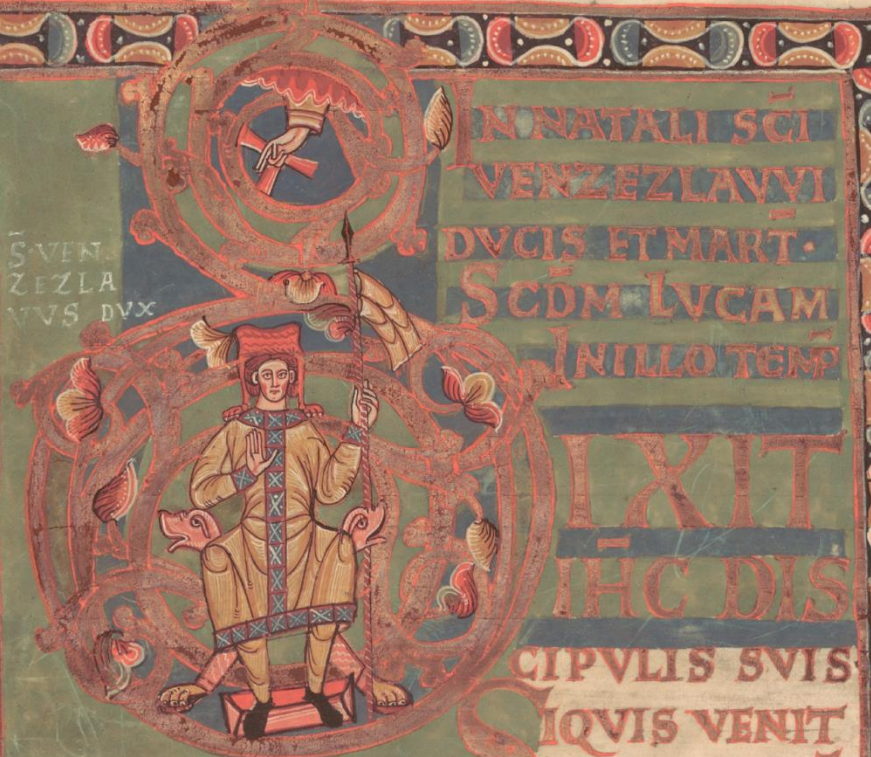 S̄·VEN
ZEZLA
VVS DVX
IN NATALI SC̄I
VENZEZLAVVI
DVCIS ET MART̄·
SCD̄M LVCAM
IN ILLO TEMP̄
DIXIT
IH̄C DIS
CIPVLIS SVIS·
SIQVIS VENIT